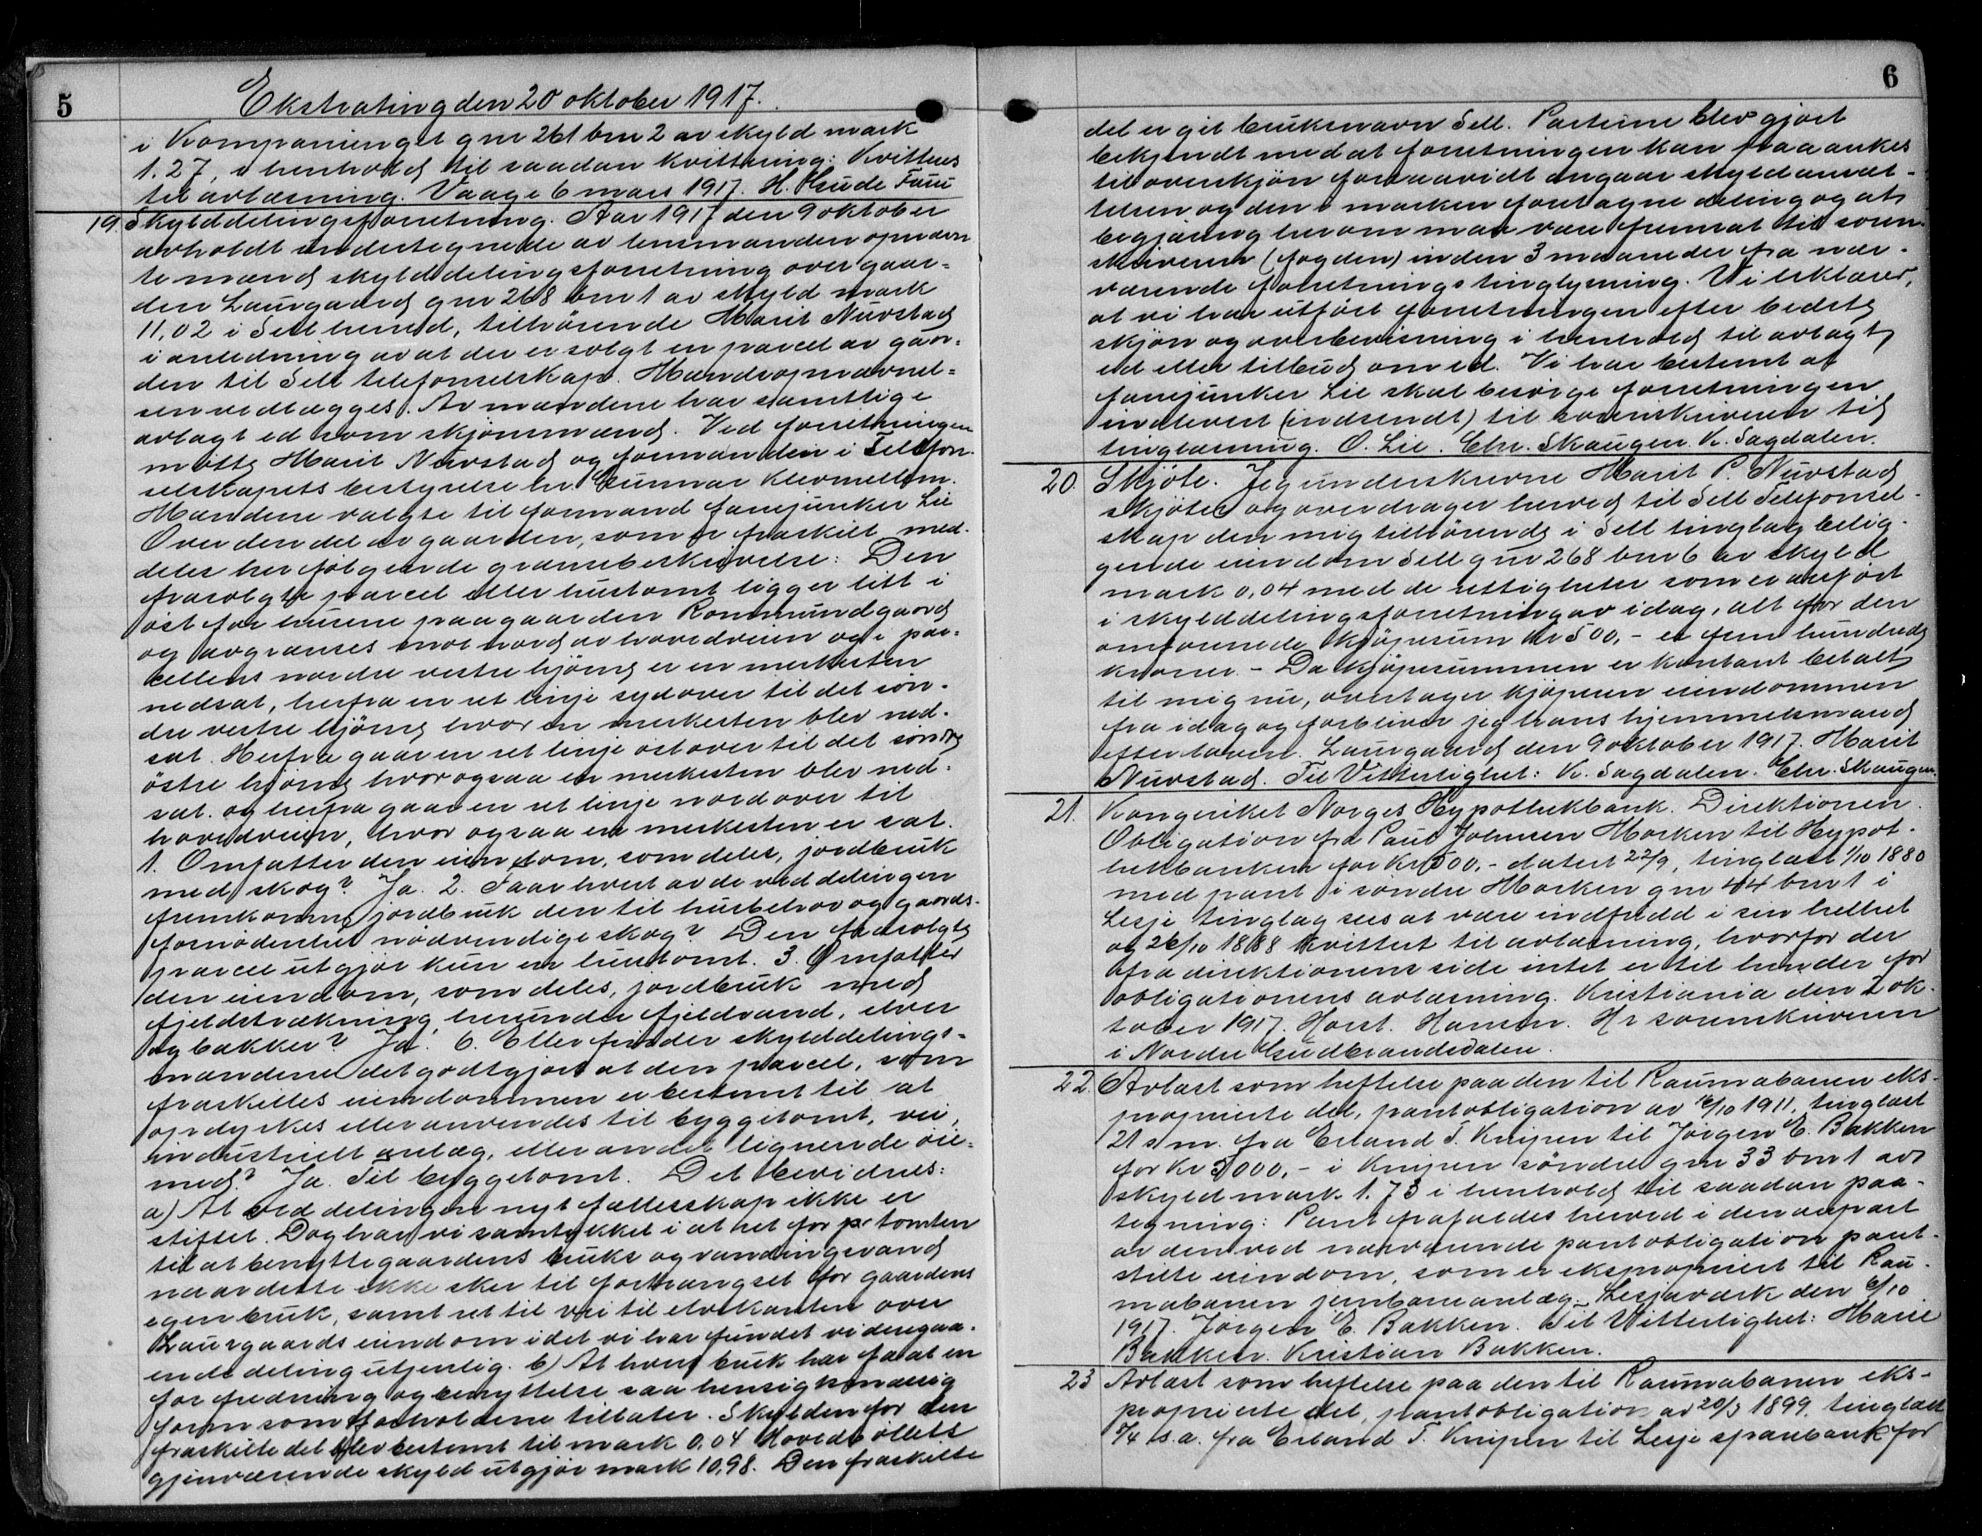 5
Ekstrating den 20 oktober 1917.
i Kompaniinget gnr 261 bnr 2 av skyld mark
1.27, i henhold til saadan kvittering: Kvitteres
til avlæsning. Vaage 6 mars 1917. H. Hsude
19. Skylddelingsforretning. Aar 1917 den 9 oktober
avholdt undertegnede av lensmanden opnævn
te mænd skylddelingsforretning over gaar-
den Laurgaard gnr 268 bnr 1 av skyld mark
11,02 i Sell herred, tilhörende Marit Nurstad
i anledning av at der er solgt en parcel av gaar-
den til Sell telefonselskap. Mandsopnævnel-
sen vedlægges. Av mændene har samtlige
avlagt ed som skjönsmænd. Ved forretningen
mötte Marit Nurstad og formanden i Telefon-
selskapets bestyrelse hr. Gunnar Klevmellem.
Mændene valgte til formand fanejunker Lie
Over den del av gaarden, som er fraskilt med-
deles her fölgende grænsebeskrivelse: Den
frasolgte parcel eller hustomt ligger litt i
öst for husene paa gaarden Rommundgaard
og avgrænses mot nord av hovedveien og i par-
cellens nordre vestre hjörne er en merkesten
nedsat, herfra en ret linje sydover til det sön-
dre vestre hjörne hvor en merkesten blev ned-
sat. Herfra gaar en ret linje östover til det söndre
östre hjörne hvor ogsaa en merkesten blev ned-
sat. og herfra gaar en ret linje nordover til
hovedveien, hvor ogsaa en merkesten er sat.
1. Omfatter den eiendom, som deles, jordbruk
med skog? Ja. 2. Faar hvert av de ved delingen
fremkomne jordbruk den til husbehov og gaards-
fornödenhet nödvendige skog? Den frasolgte
parcel utgjör kun en hustomt. 3. Omfatter
den eiendom, som deles, jordbruk med
fjeldstrækning, herunder fjeldvand, elver
og bækker? Ja. 6. Eller finder skylddelings-
mændene det godtgjort at den parcel, som
fraskilles eiendommen er bestemt til at
opdyrkes eller anvendes til byggetomt, vei,
industrielt anlæg, eller andet lignende öie-
med? Ja. Til byggetomt. Det bevidnes:
a) At ved delingen nyt fællesskap ikke er
stiftet. Dog har vi samtykket i at ret for pr tomten
til at benytte gaardens bruks og vandingsvand
naar dette ikke sker til fortrængsel for gaardens
egen bruk, samt ret til vei til elvekanten over
Laurgaards eiendom idet vi har fundet videregaa-
ende deling utjenlig. b) At hvert bruk har faat en
for fredning og benyttelse saa hensigtsmæssig
form som forholdene tillater. Skylden for den
fraskilte del blev bestemt til mark 0,04 Hovedbölets
gjenværende skyld utgjör mark 10,98. Den fraskilte
6
del er git bruksnavn Sell. Parterne blev gjort
bekjendt med at forretningen kan paaankes
til overskjön forsaavidt angaar skyldansæt-
telsen og den i marken foretagne deling og at
begjæring herom maa være fremsat til soren-
skriveren (fogden) inden 3 maaneder fra nær-
værende forretnings tinglysning. Vi erklærer,
at vi har utfört forretningen efter bedste
skjön og overbevisning i henhold til avlagt
ed eller tilbud om ed. Vi har bestemt at
fanejunker Lie skal besörge forretningen
indlevert (indsendt) til sorenskriveren til
tinglæsning. O. Lie. Chr. Skaugen. K. Sagdalen.
20. Skjöte. Jeg underskrevne Marit P. Nurstad
skjöter og overdrager herved til Sell Telefonsel-
skap den mig tilhörende i Sell tinglag belig-
gende eiendom Sell gnr 268 bnr 6 av skyld
mark 0,04 med de rettigheter som er anfört
i skylddelingsforretning av idag, alt for den
omforenede kjöpesum kr 500,- er fem hundrede
kroner. - Da kjöpesummen er kontant betalt
til mig nu, overtager kjöperen eiendommen
fra idag og forbliver jeg hans hjemmelsmand
efter loven. Laurgaard den 9 oktober 1917. Marit
Nurstad. Til Vitterlighet: K. Sagdalen. Chr. Skaugen.
21. Kongeriket Norges Hypothekbank. Direktionen.
Obligation fra Paul Johnsen Morken til Hypot-
hekbanken for kr 500,- datert 22/9, tinglæst 1/10 1880
med pant i söndre Morken gnr 44 bnr 1 i
Lesje tinglag sees at være indfridd i sin helhet
og 26/10 1888 kvittert til avlæsning, hvorfor der
fra direktionens side intet er til hinder for
obligationens avlæsning. Kristiania den 2 ok-
tober 1917. Horst. Hansen. Hr sorenskriveren
i Nordre Gudbrandsdalen.
22. Avlæst som heftelse paa den til Raumabanen eks-
proprierte del, pantobligation av 16/10 1911, tinglæst
21 s/m. fra Erland T. Knipen til Jörgen E. Bakken
for kr 3000,- i Knipen söndre gnr 33 bnr 1 av
skyld mark 1.73 i henhold til saadan paa-
tegning: Pant frafaldes herved i den anpart
av den ved nærværende pantobligation pant-
stilte eiendom, som er ekspropriert til Rau-
mabanen jernbaneanlæg. Lesjaværk den 6/10
1917. Jörgen E. Bakken. Til Vitterlighet: Marie
Bakken. Kristian Bakken.
23 Avlæst som heftelse paa den til Raumabanen eks-
proprierte del, pantobligation av 20/3 1899, tinglæst
7/4 s.a. fra Erland T. Knipen til Lesje sparebank for